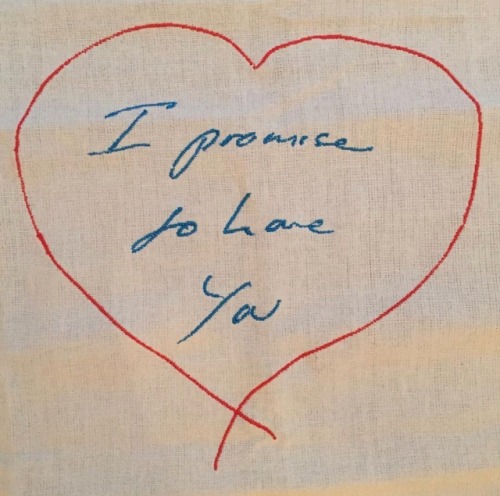 I promise
to have
You